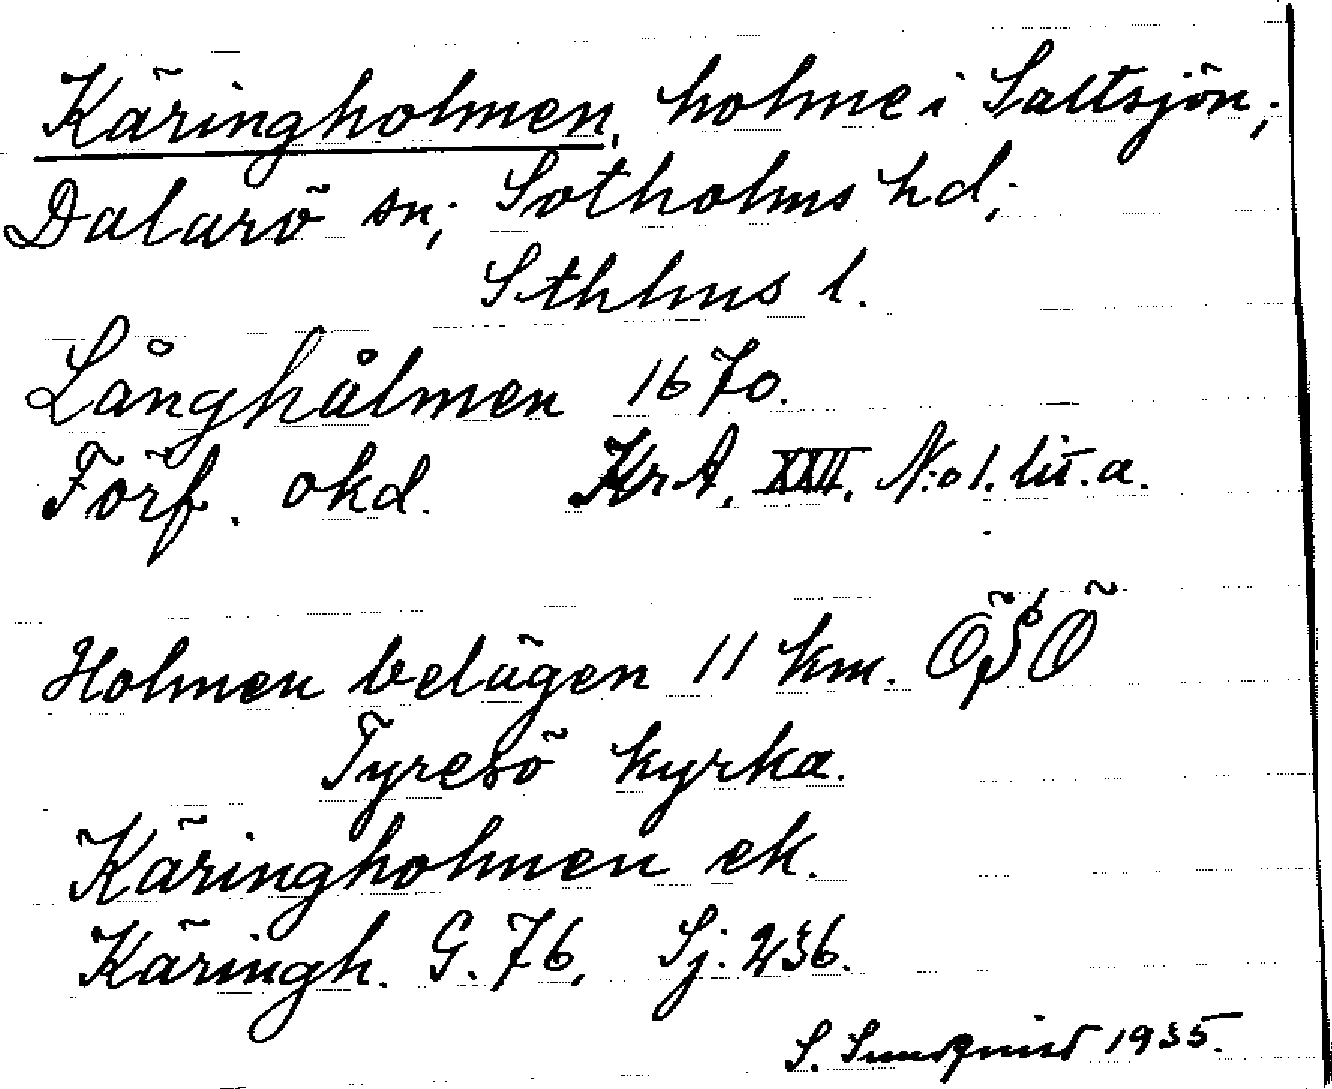 Käringholmen, holme i Saltsjön;
Dalarö sn; Sotholms hd;
Sthlms l.
Långhålmen 1670.
Förf. okd. KrA. XXII. N:o 1. lit. a.
Holmen belägen 11 km. ÖSÖ
Tyresö kyrka.
Käringholmen ek.
Käringh. G. 76. Sj. 236.
S. Sundqvist 1935.